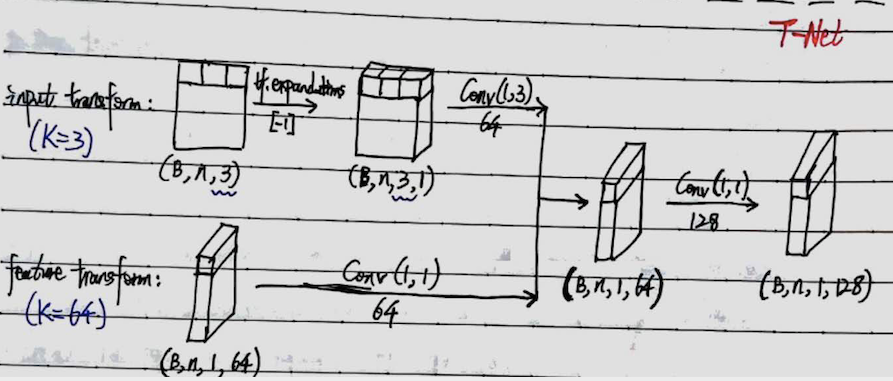 T-Net
input transform:
(K=3)
(B, n, 3)
tf.expand_dims
[-1]
(B, n, 3, 1)
Conv(1,3)
64
feature transform:
(K=64)
(B, n, 1, 64)
Conv (1,1)
64
(B, n, 1, 64)
Conv (1,1)
128
(B, n, 1, 128)